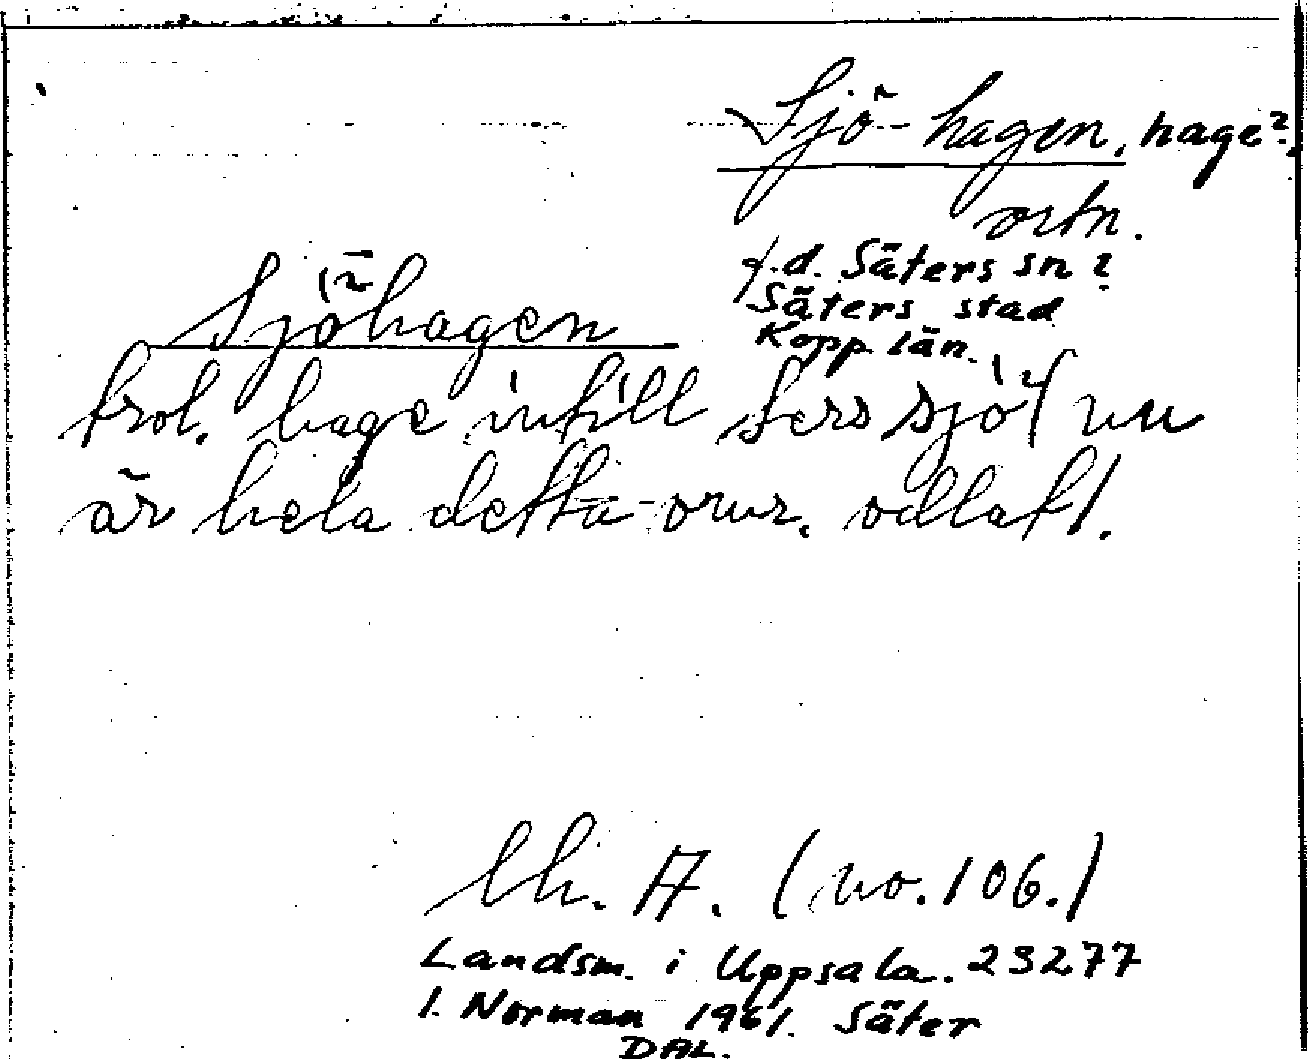 Sjö-hagen, hage?,
ortn.
f.d. Säters sn?
Säters stad
Kopp. län.
Sjöhagen
trol. hage intill Sers sjö (nu
är hela detta omr. odlat).
bl. A. (no. 106.)
Landsm. i Uppsala. 23277
I. Norman 1961. Säter
DAL.